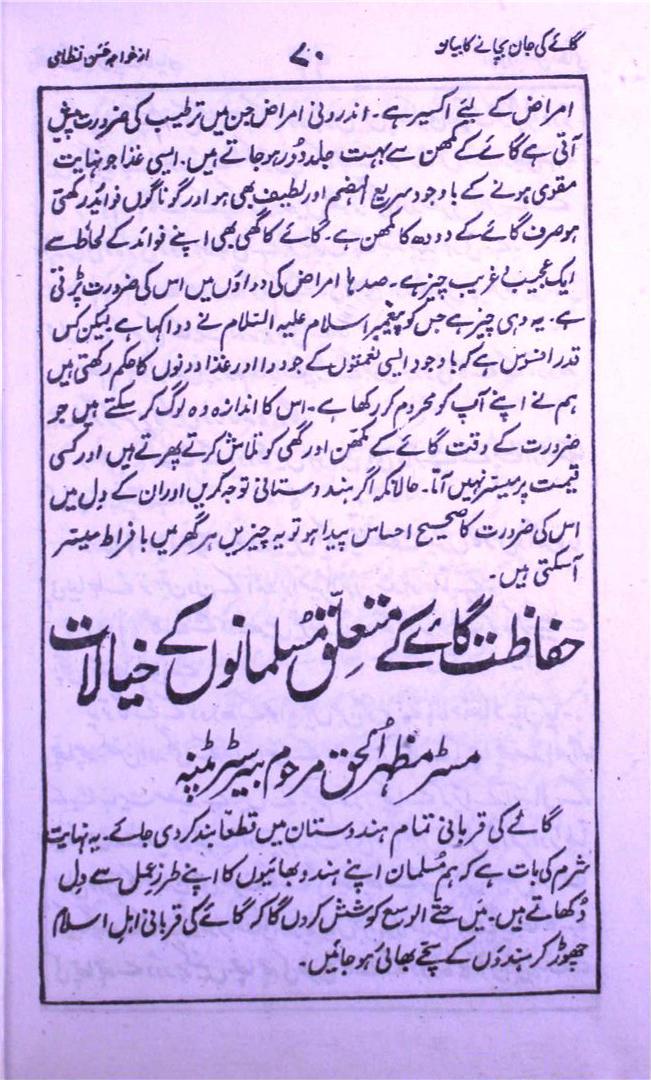 گائے کی جان بچانے کا بیان
۷۰
از خواجہ حسن نظامی
امراض کے لئے اکسیر ہے۔ اندرونی امراض جن میں ترطیب کی ضرورت پیش
آتی ہے گائے کے مکھن سے بہت جلد دُور ہو جاتے ہیں۔ ایسی غذا جو نہایت
مقوی ہونے کے باوجود سریع الہضم اور لطیف بھی ہو اور گوناگوں فوائد رکھتی
ہو صرف گائے کے دودھ کا مکھن ہے۔ گائے کا گھی بھی اپنے فوائد کے لحاظ سے
ایک عجیب و غریب چیز ہے۔ صدہا امراض کی دواؤں میں اس کی ضرورت پڑتی
ہے۔ یہ وہی چیز ہے جس کو پیغمبر اسلام علیہ السّلام نے دوا کہا ہے لیکن کس
قدر افسوس ہے کہ باوجود ایسی نعمتوں کے جو دوا اور غذا دونوں کا حکم رکھتی ہیں
ہم نے اپنے آپ کو محروم کر رکھا ہے۔ اس کا اندازہ وہ لوگ کر سکتے ہیں جو
ضرورت کے وقت گائے کے مکھّن اور گھی کو تلاش کرتے پھرتے ہیں اور کسی
قیمت پر میسّر نہیں آتا۔ حالانکہ اگر ہندوستانی توجہ کریں اور ان کے دِل میں
اس کی ضرورت کا صحیح احساس پیدا ہو تو یہ چیزیں ہر گھر میں بافراط میسّر
آسکتی ہیں۔
حفاظت گائے کے متعلّق مُسلمانوں کے خیالات
مسٹر مظہرُ الحق مرحوم بیرسٹر پٹنہ
گائے کی قربانی تمام ہندوستان میں قطعاً بند کر دی جائے۔ یہ نہایت
شرم کی بات ہے کہ ہم مُسلمان اپنے ہندو بھائیوں کا اپنے طرزِ عمل سے دِل
دُکھاتے ہیں۔ میں حتّے الوسع کوشش کروں گا کہ گائے کی قربانی اہلِ اسلام
چھوڑ کر ہندوؤں کے سچّے بھائی ہو جائیں۔